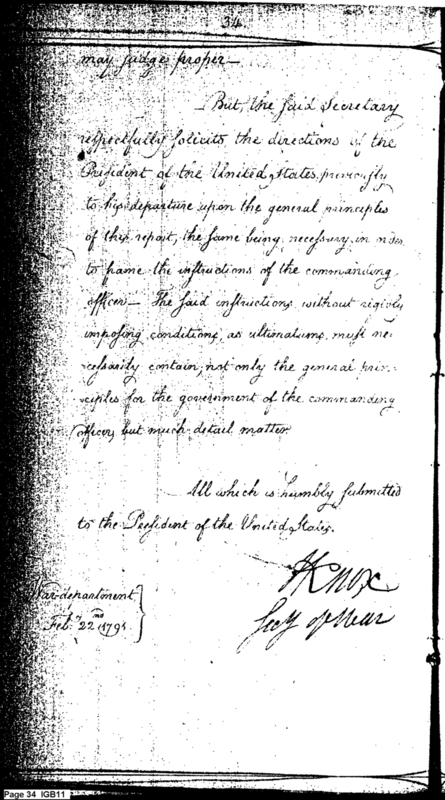 34
may judge proper—
But, the said Secretary
respectfully solicits the directions of the
President of the United States, previously
to his departure upon the general principles
of this report, the same being necessary in order
to frame the instructions of the commanding
officer— The said instructions, without rigidly
imposing conditions, as ultimatums, must ne-
cessarily contain, not only the general prin-
ciples for the government of the commanding
officer, but much detail matter.
All which is humbly submitted
to the President of the United States.
HKnox
Secy of War
War-department
Feby 22nd 1791
Page 34 IGB11